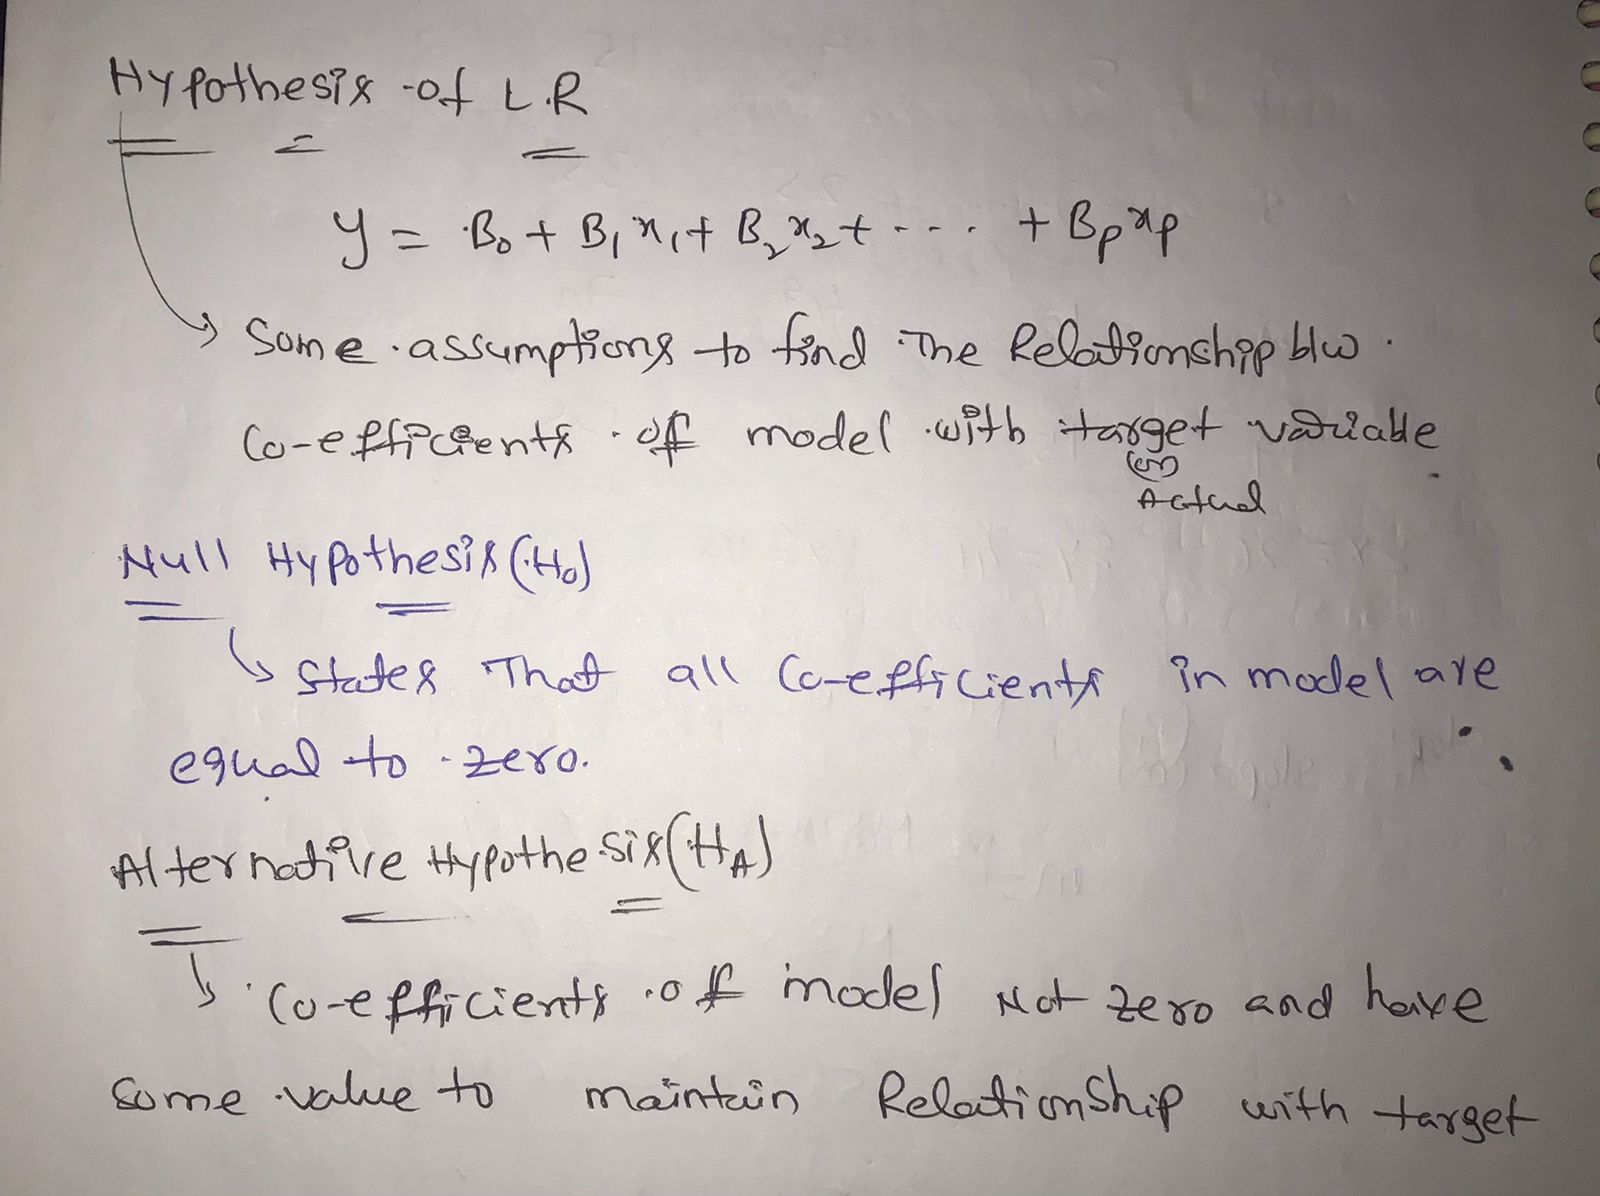 Hypothesis of L.R
y = B₀ + B₁x₁ + B₂x₂ + ---. + Bₚxₚ
Some assumptions to find The Relationship b/w
Co-efficients of model with target variable
(or)
Actual
Null Hypothesis (H₀)
States That all Co-efficients in model are
equal to zero.
Alternative Hypothesis (Hᴀ)
Co-efficients of model Not zero and have
some value to maintain Relationship with target